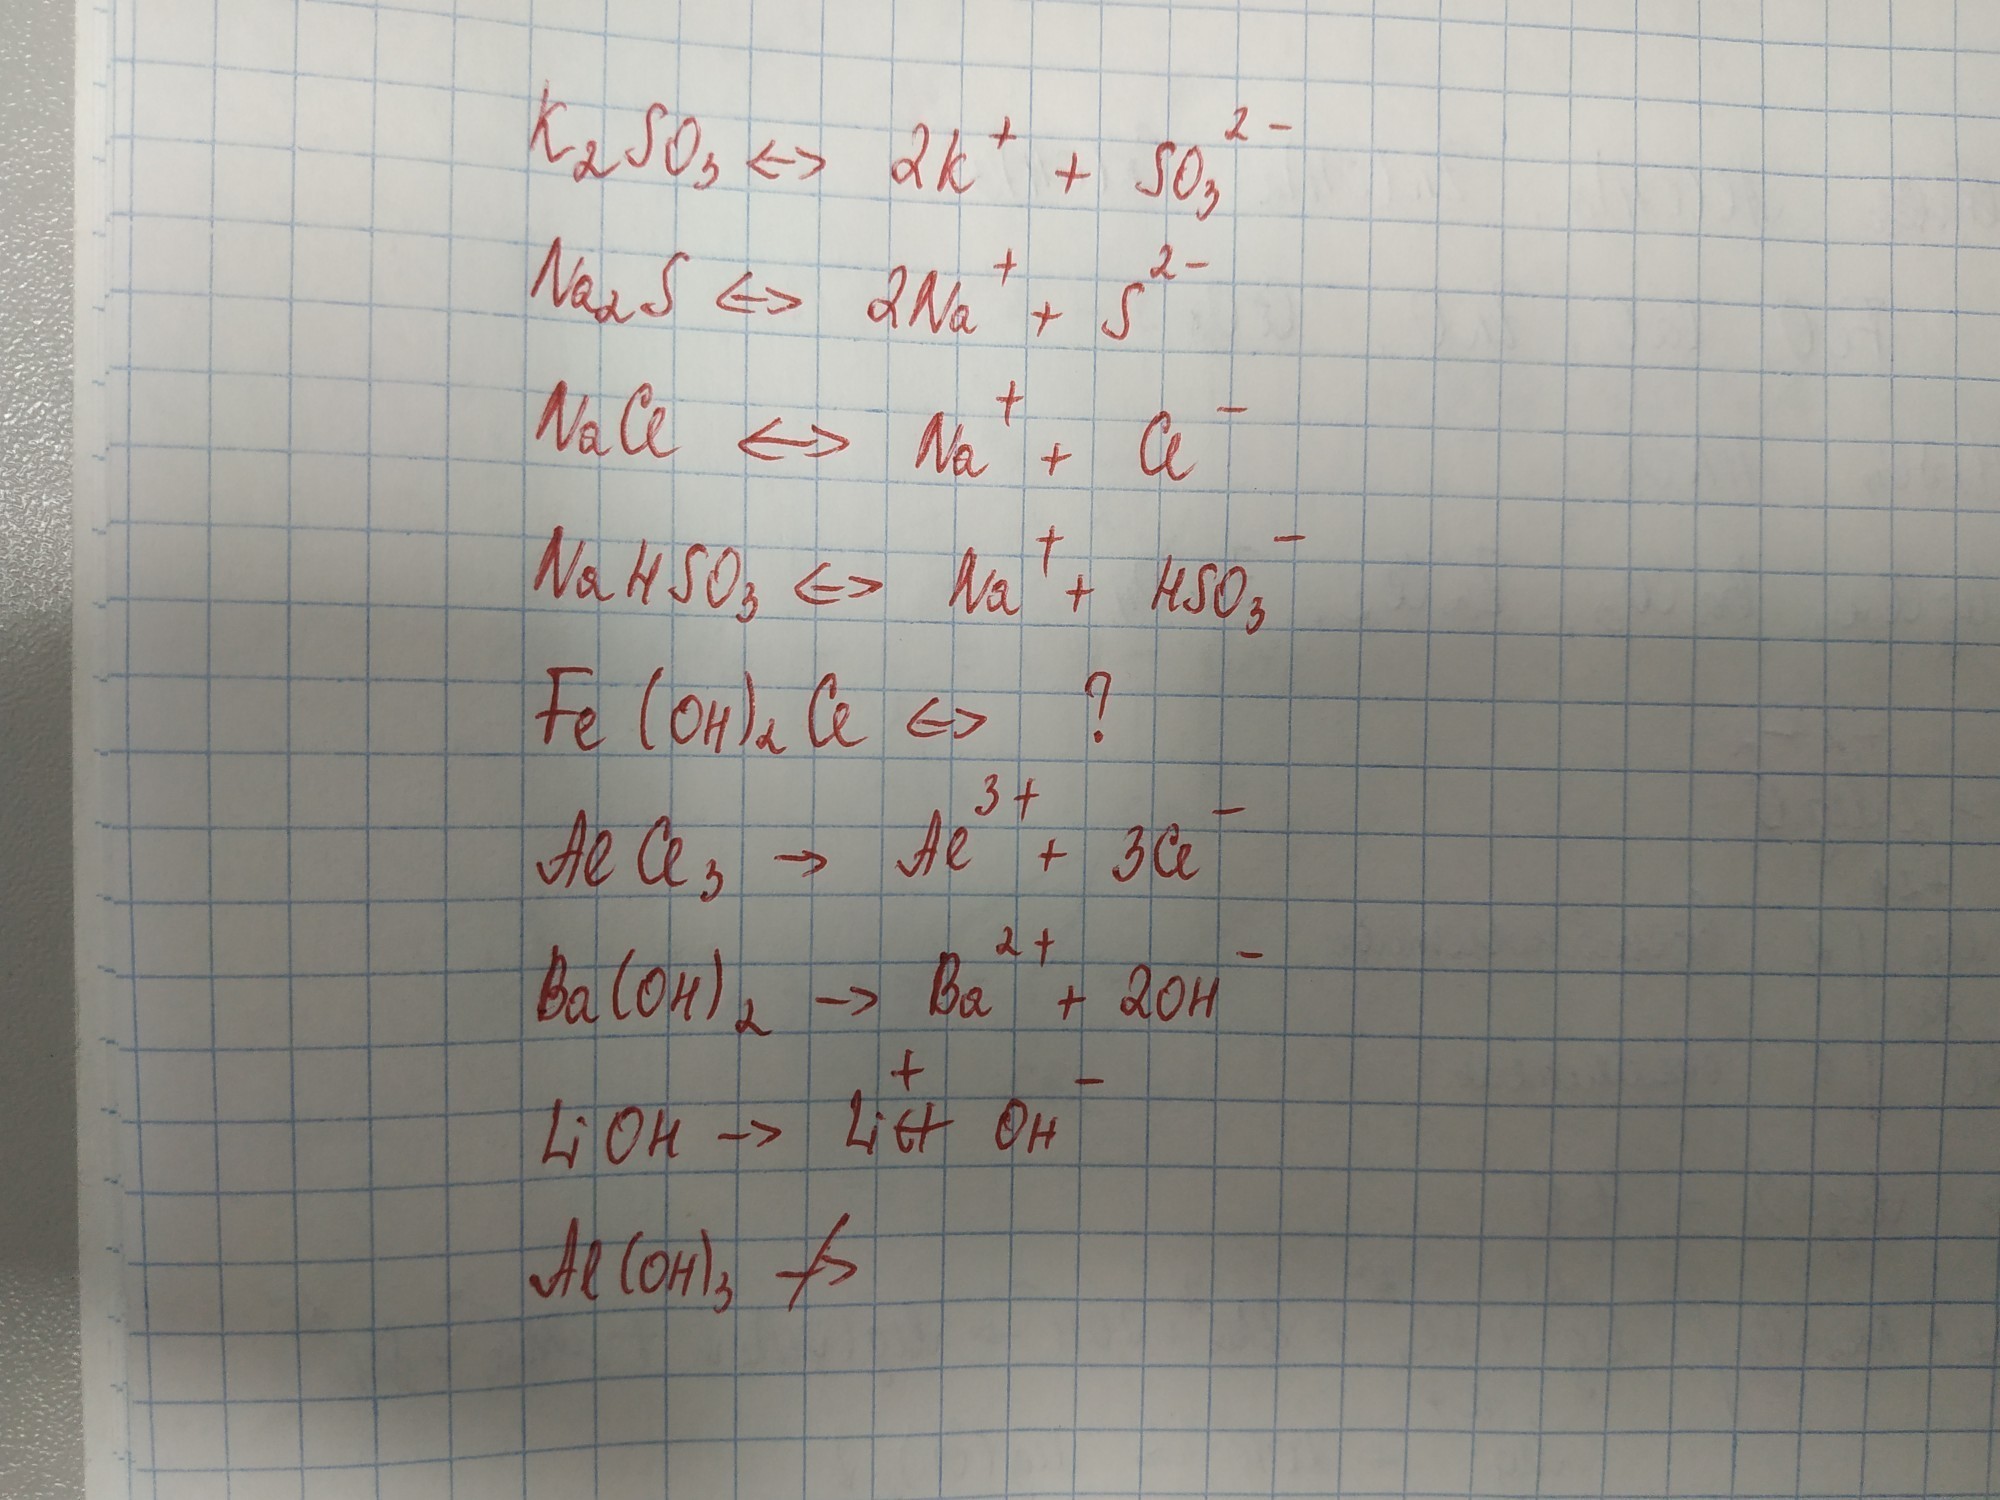 K₂SO₃ <-> 2K⁺ + SO₃²⁻
Na₂S <-> 2Na⁺ + S²⁻
NaCl <-> Na⁺ + Cl⁻
NaHSO₃ <-> Na⁺ + HSO₃⁻
Fe(OH)₂Cl <-> ?
AlCl₃ → Al³⁺ + 3Cl⁻
Ba(OH)₂ → Ba²⁺ + 2OH⁻
LiOH → Li⁺ + OH⁻
Al(OH)₃ ↛